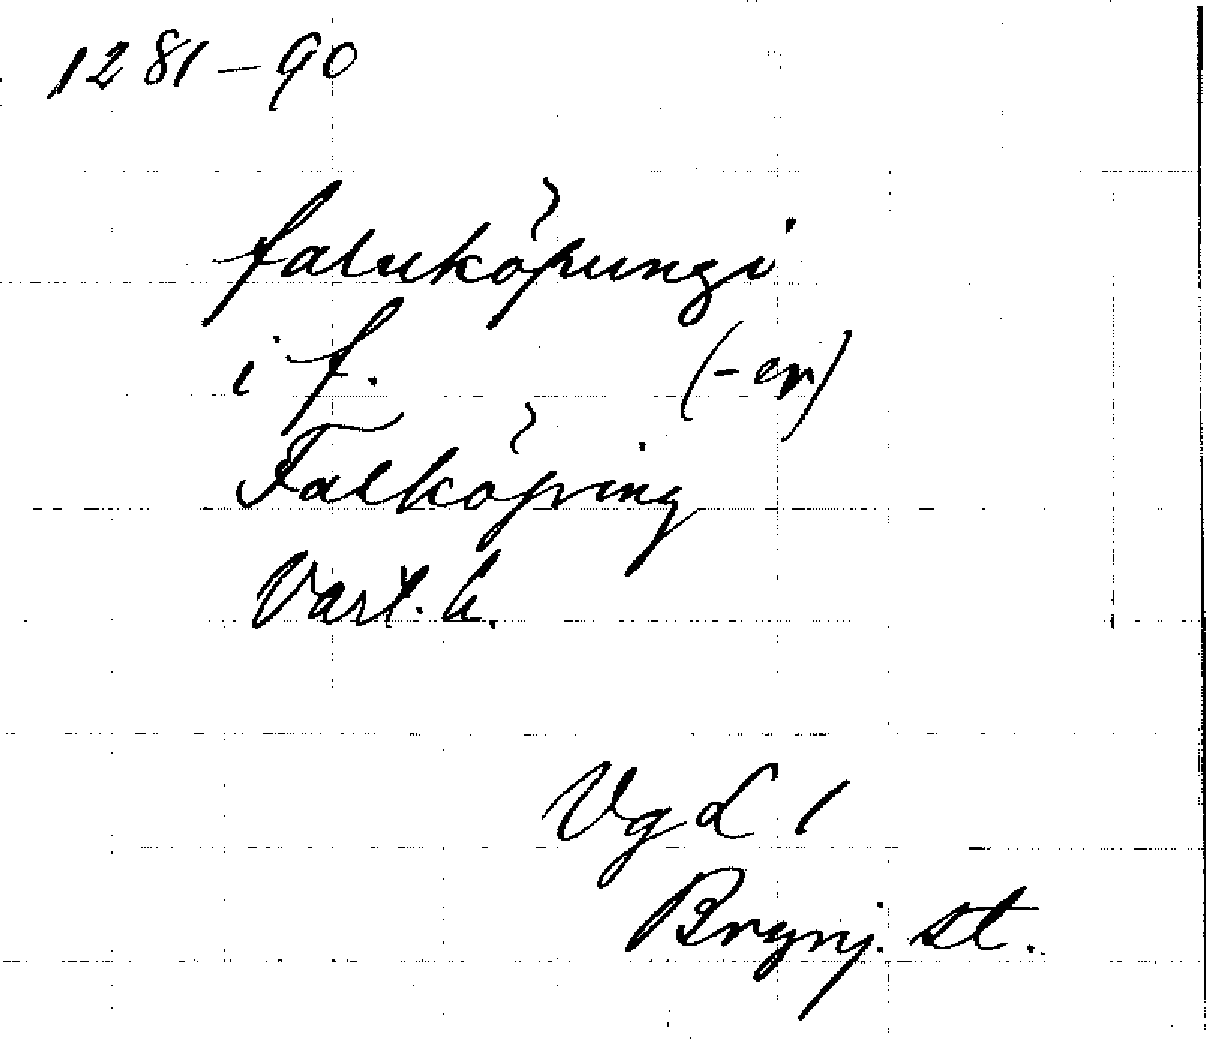 1281-90
faluköpungi
i f. (-er)
Falköping
Vart. h.
VgL 1
Brynj. st.